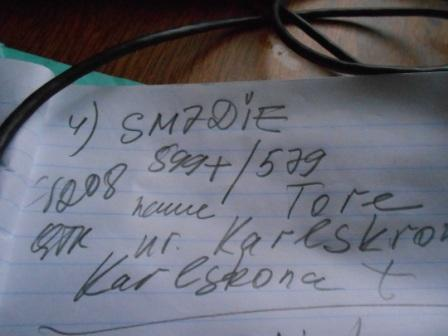 4) SM7DIE
599+/579
1208 name Tore
QTH nr. Karlskron
Karlskona +